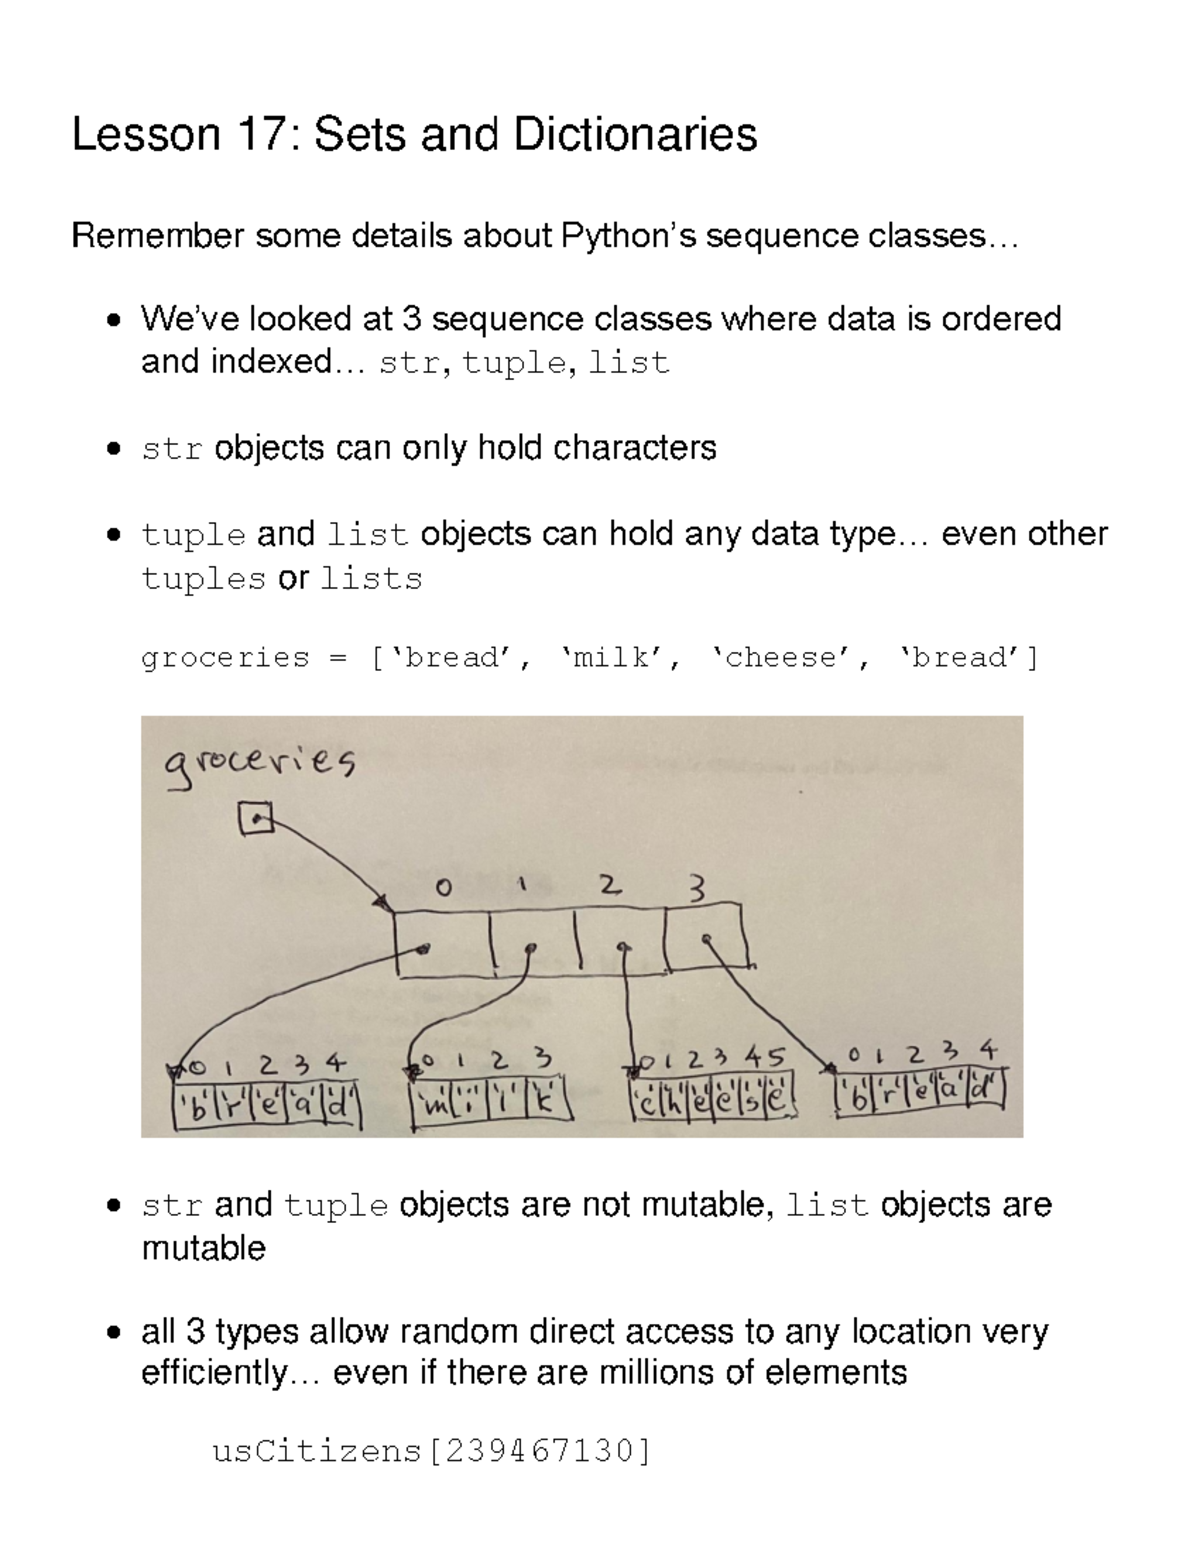 Lesson 17: Sets and Dictionaries
Remember some details about Python’s sequence classes…
• We’ve looked at 3 sequence classes where data is ordered
and indexed… str, tuple, list
• str objects can only hold characters
• tuple and list objects can hold any data type… even other
tuples or lists
groceries = [‘bread’, ‘milk’, ‘cheese’, ‘bread’]
groceries
0 1 2 3
0 1 2 3 4 0 1 2 3 0 1 2 3 4 5 0 1 2 3 4
'b' 'r' 'e' 'a' 'd' 'm' 'i' 'l' 'k' 'c' 'h' 'e' 'e' 's' 'e' 'b' 'r' 'e' 'a' 'd'
• str and tuple objects are not mutable, list objects are
mutable
• all 3 types allow random direct access to any location very
efficiently… even if there are millions of elements
usCitizens[239467130]